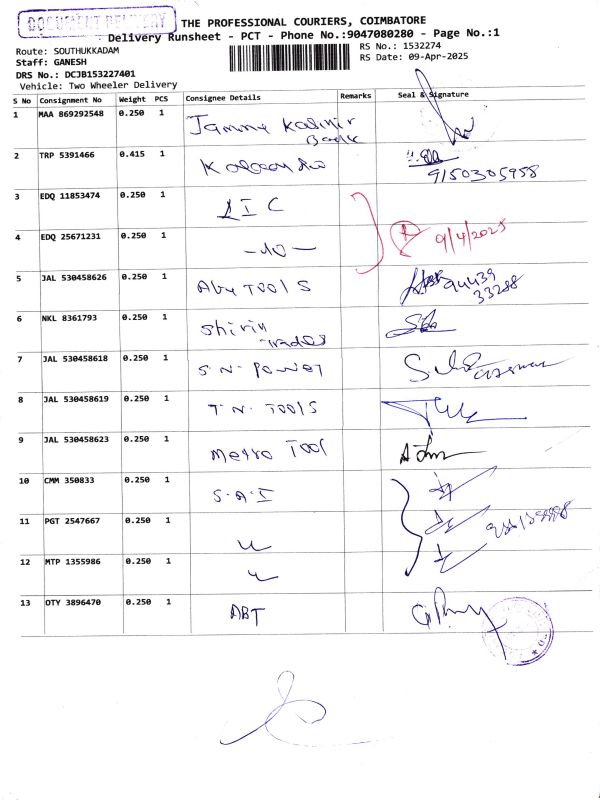 DOCUMENT DELIVERY
THE PROFESSIONAL COURIERS, COIMBATORE
Delivery Runsheet - PCT - Phone No.:9047080280 - Page No.:1
Route: SOUTHUKKADAM
RS No.: 1532274
Staff: GANESH
RS Date: 09-Apr-2025
DRS No.: DCJB153227401
Vehicle: Two Wheeler Delivery
S No Consignment No Weight PCS Consignee Details Remarks Seal & Signature
1 MAA 869292548 0.250 1 Jammu Kasmir Bank
2 TRP 5391466 0.415 1 9150305958
3 EDQ 11853474 0.250 1 LIC
4 EDQ 25671231 0.250 1 9/4/2025
5 JAL 530458626 0.250 1 Abu TOOLS 94439 33288
6 NKL 8361793 0.250 1 Shirin Trades
7 JAL 530458618 0.250 1 S.N. Power
8 JAL 530458619 0.250 1 T.N. TOOLS
9 JAL 530458623 0.250 1 Metro TOOl
10 CMM 350833 0.250 1 S.A.I
11 PGT 2547667 0.250 1
12 MTP 1355986 0.250 1
13 OTY 3896470 0.250 1 ABT